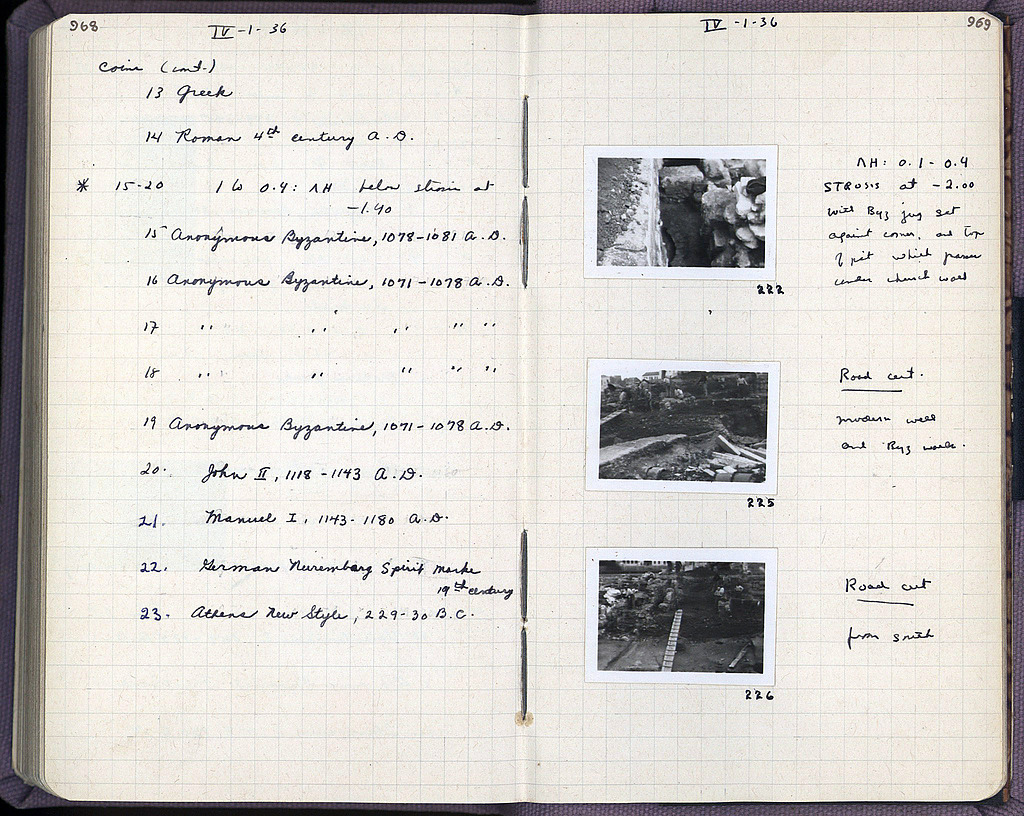 968
IV-1-36
Coins (cont.)
13 Greek
14 Roman 4th century A.D.
* 15-20 1 to 0.4: ΛΗ below strosis at
-1.40
15 Anonymous Byzantine, 1078-1081 A.D.
16 Anonymous Byzantine, 1071-1078 A.D.
17 " " " " "
18 " " " " "
19 Anonymous Byzantine, 1071-1078 A.D.
20. John II, 1118-1143 A.D.
21. Manuel I, 1143-1180 A.D.
22. German Nuremburg Spiel Marke
19th century
23. Athens New Style, 229-30 B.C.
IV-1-36
969
ΛΗ: 0.1-0.4
STROSIS at -2.00
with Byz jug set
against corner, and top
of pit which passes
under church wall
222
Road cut.
modern wall
and Byz walls.
225
Road cut
from south
226